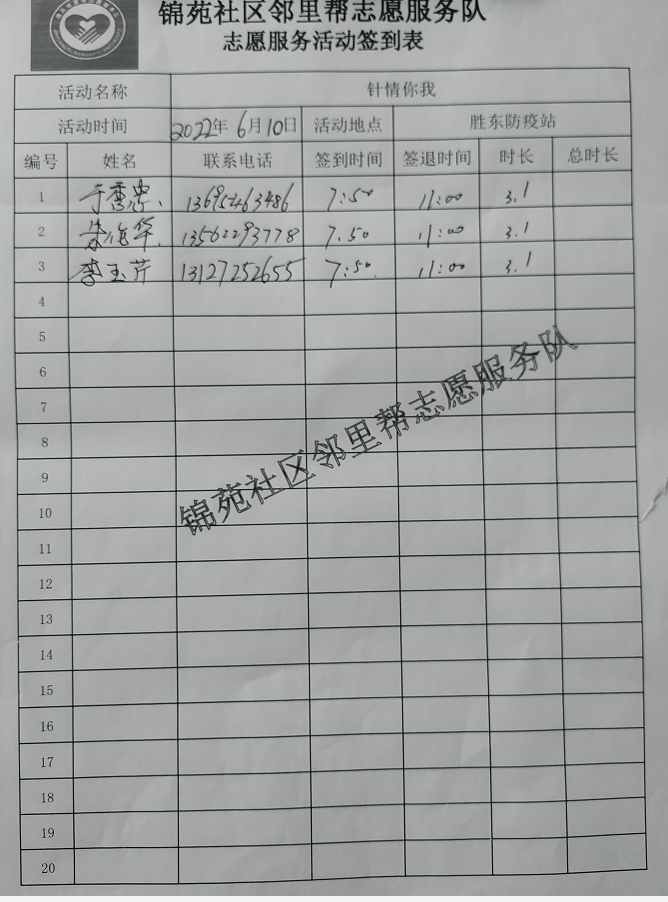 锦苑社区邻里帮志愿服务队
志愿服务活动签到表
活动名称 针情你我
活动时间 2022年6月10日 活动地点 胜东防疫站
编号 姓名 联系电话 签到时间 签退时间 时长 总时长
1 于秀忠 13695463486 7:50 11:00 3.1
2 朱俊华 13562293778 7.50 11:00 3.1
3 李玉芹 13127252655 7:50 11:00 3.1
4
5
6
7
8
锦苑社区邻里帮志愿服务队
9
10
11
12
13
14
15
16
17
18
19
20